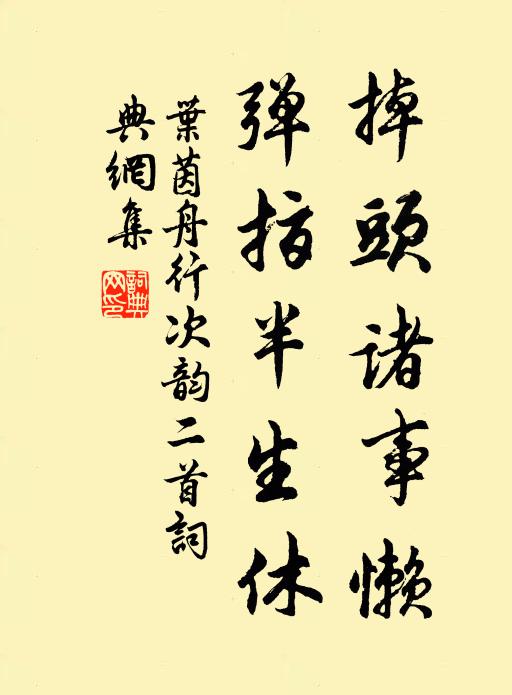 掉頭諸事懶
彈指半生休
葉茵舟行次韵二首詞
典網集
詞典網印